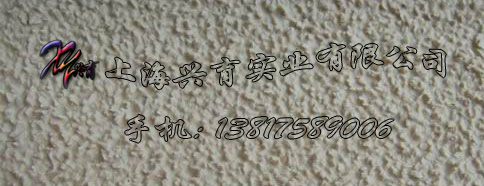 兴育 上海兴育实业有限公司
手机：13817589006